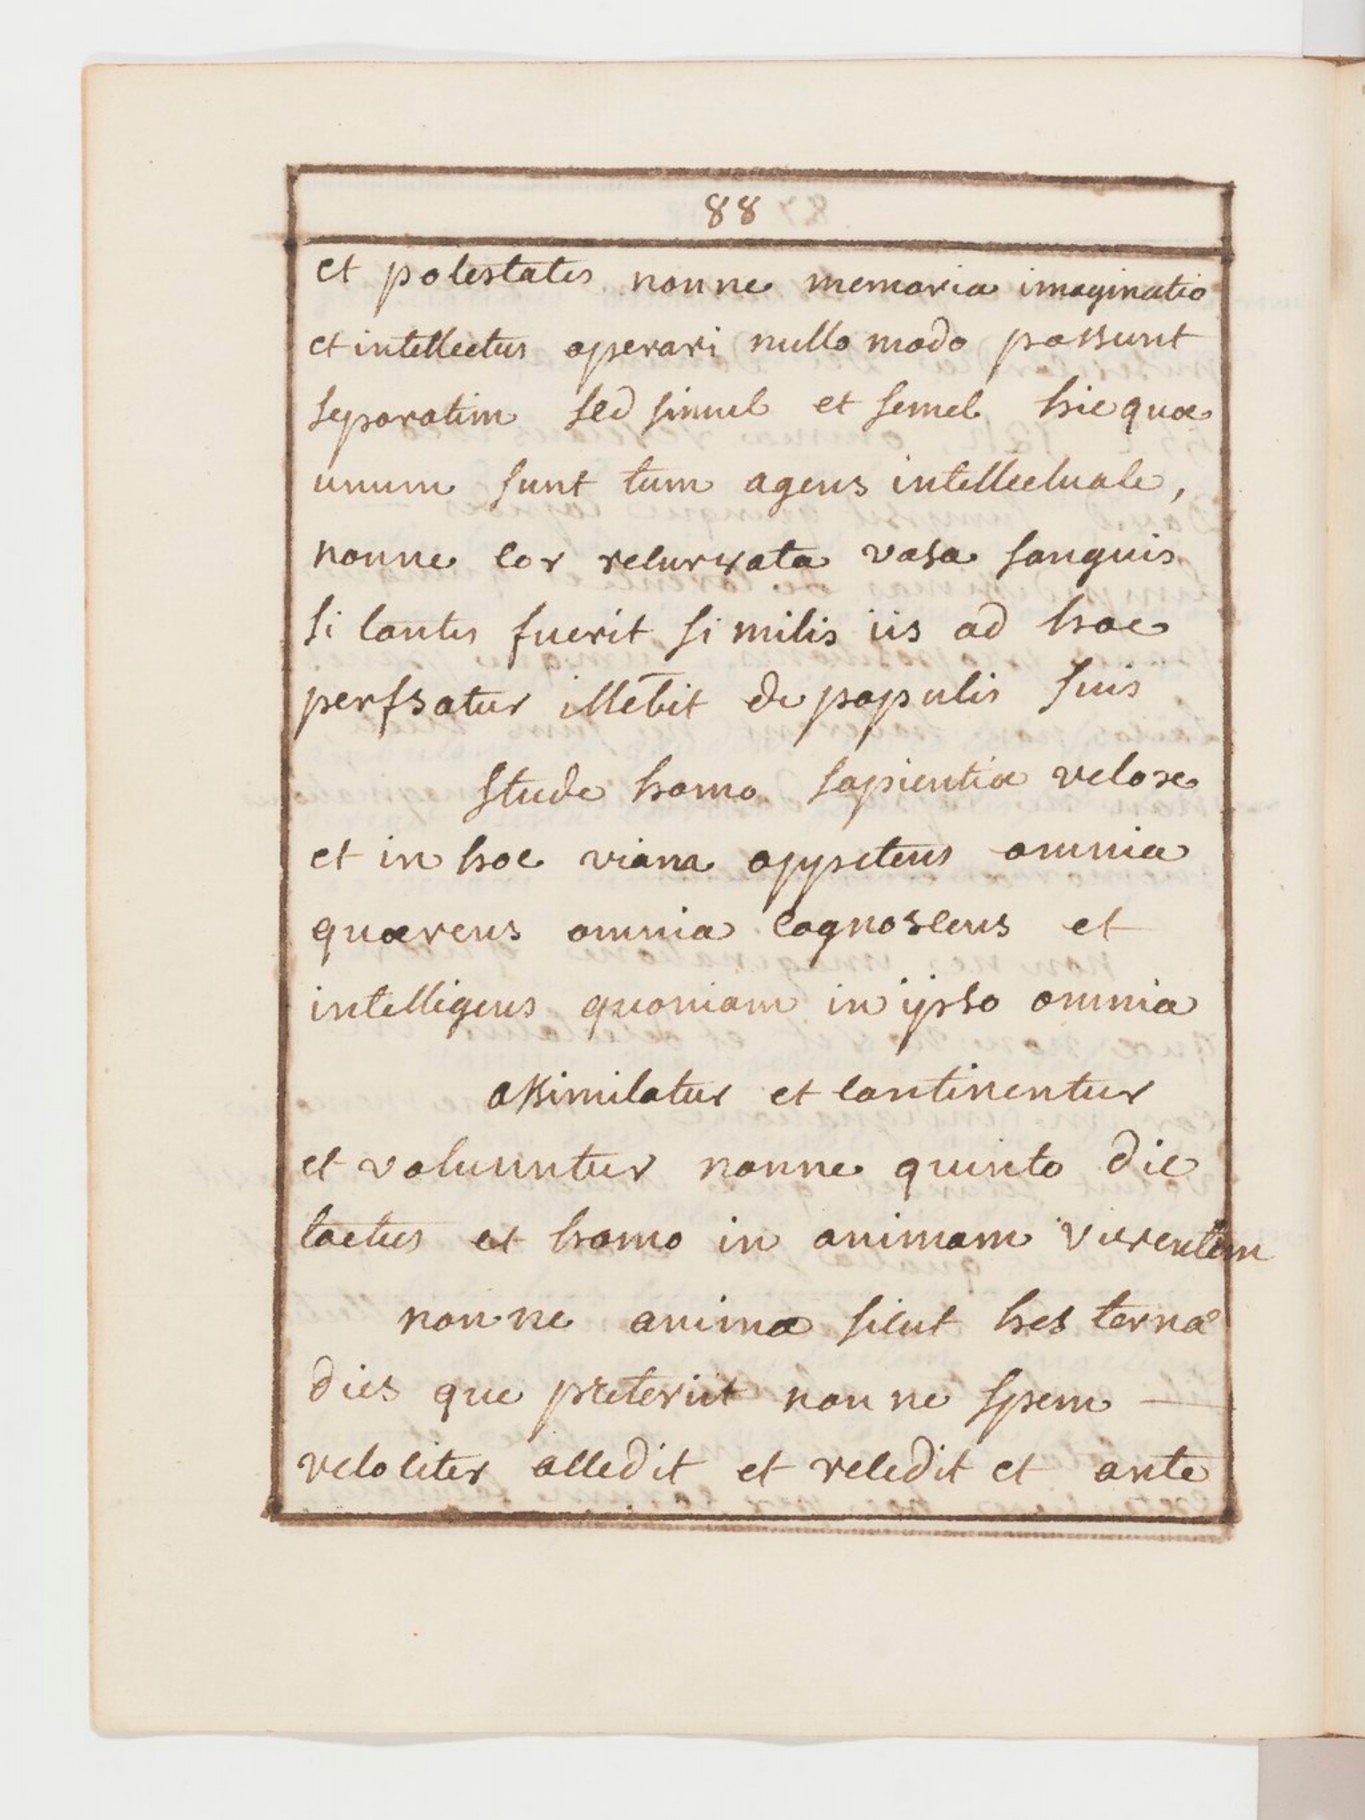 88
et potestates nonne memoria imaginatio
et intellectus operari nullo modo possunt
separatim sed simul et semel hic quæ
unum sunt tum agens intellectuale,
nonne cor recurrata vasa sanguis
si cautes fuerit similis iis ad hoc
de populis suis
Stude homo sapientiæ velose
et in hoc viam appetens omnia
quærens omnia cognoscens et
intelligens quoniam in ipso omnia
assimilatur et continentur
et voluuntur nonne quinto die
tactus et homo in animam viventem
nonne animæ sicut hes ternæ
dies que preteriit nonne spem
velociter accedit et recedit et ante